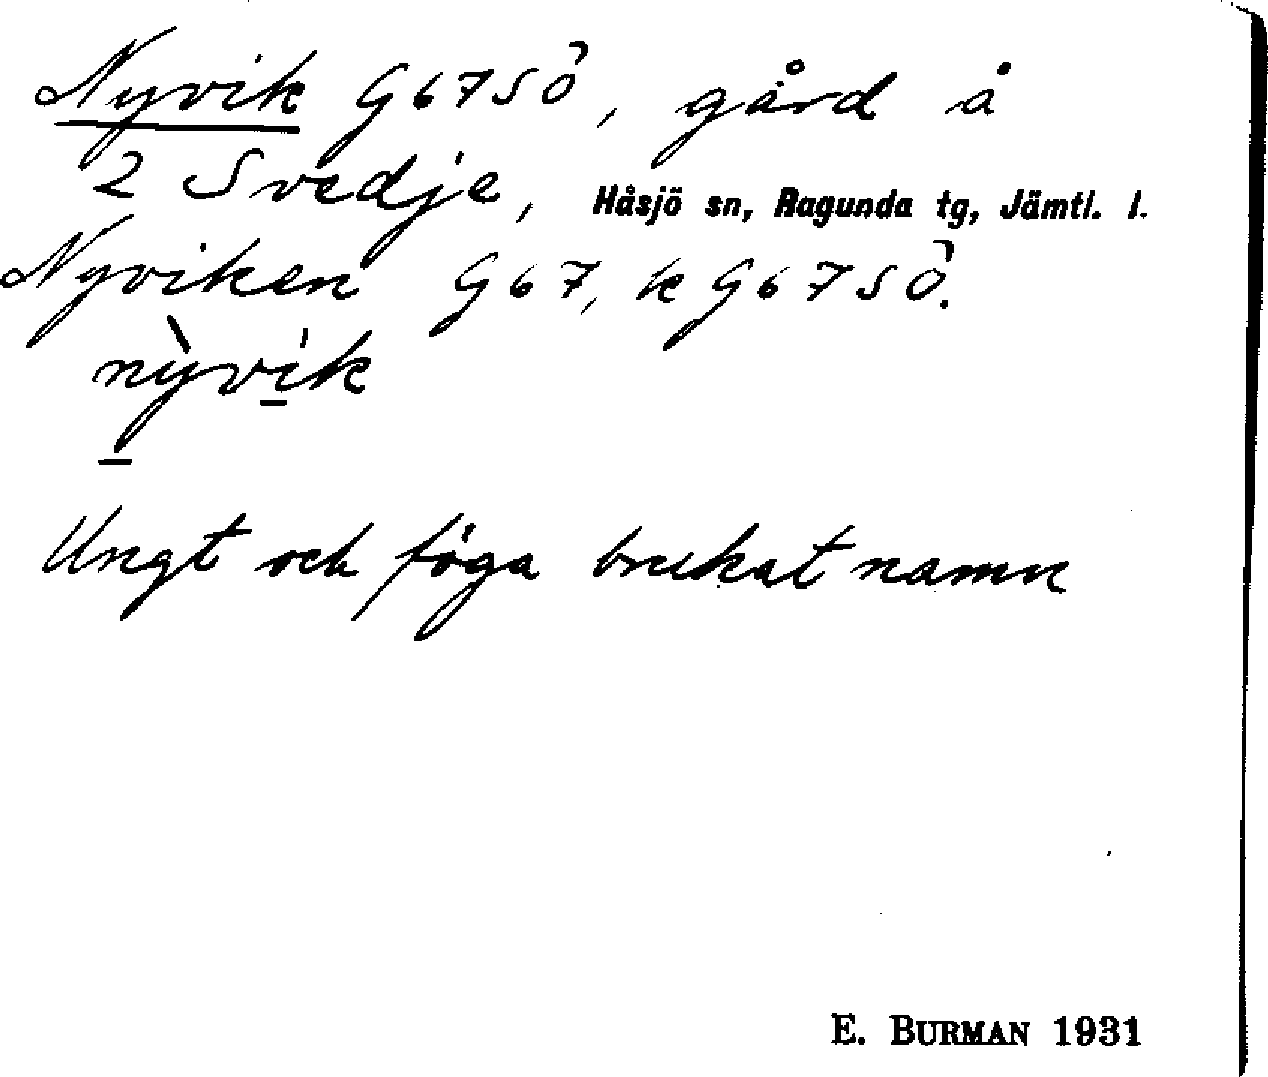 Nyvik G67SÖ, gård å
2 Svedje, Håsjö sn, Ragunda tg, Jämtl. l.
Nyviken G67, k G67SÖ.
nỳvík
Ungt och föga brukat namn
E. BURMAN 1931